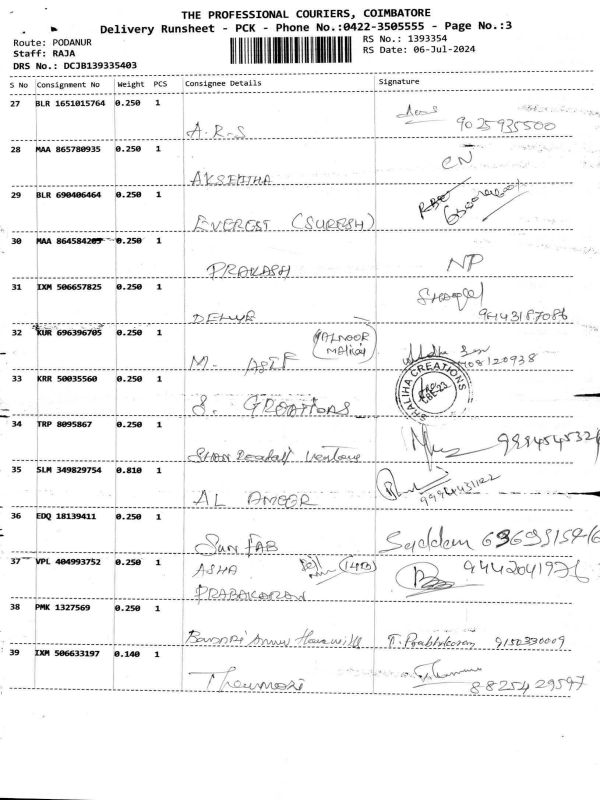 THE PROFESSIONAL COURIERS, COIMBATORE
Delivery Runsheet - PCK - Phone No.:0422-3505555 - Page No.:3
Route: PODANUR
Staff: RAJA
DRS No.: DCJB139335403
RS No.: 1393354
RS Date: 06-Jul-2024
S No Consignment No Weight PCS Consignee Details Signature
27 BLR 1651015764 0.250 1
A.R.S 9025935500
28 MAA 865780935 0.250 1
CN
29 BLR 690406464 0.250 1
EVEREST (SURESH)
30 MAA 864584209 0.250 1
PRAKASH NP
31 IXM 506657825 0.250 1
9443187086
32 KUR 696396705 0.250 1
M. ASIF
33 KRR 50035560 0.250 1
S. CREATIONS
HALIHA CREATIONS
34 TRP 8095867 0.250 1
35 SLM 349829754 0.810 1
AL AMEER
36 EDQ 18139411 0.250 1
SUN FAB Saddam
37 VPL 404993752 0.250 1
ASHA (14B) 9442041976
PRABAKARAN
38 PMK 1327569 0.250 1
T. Prabhakaran 9150330009
39 IXM 506633197 0.140 1
8825429597